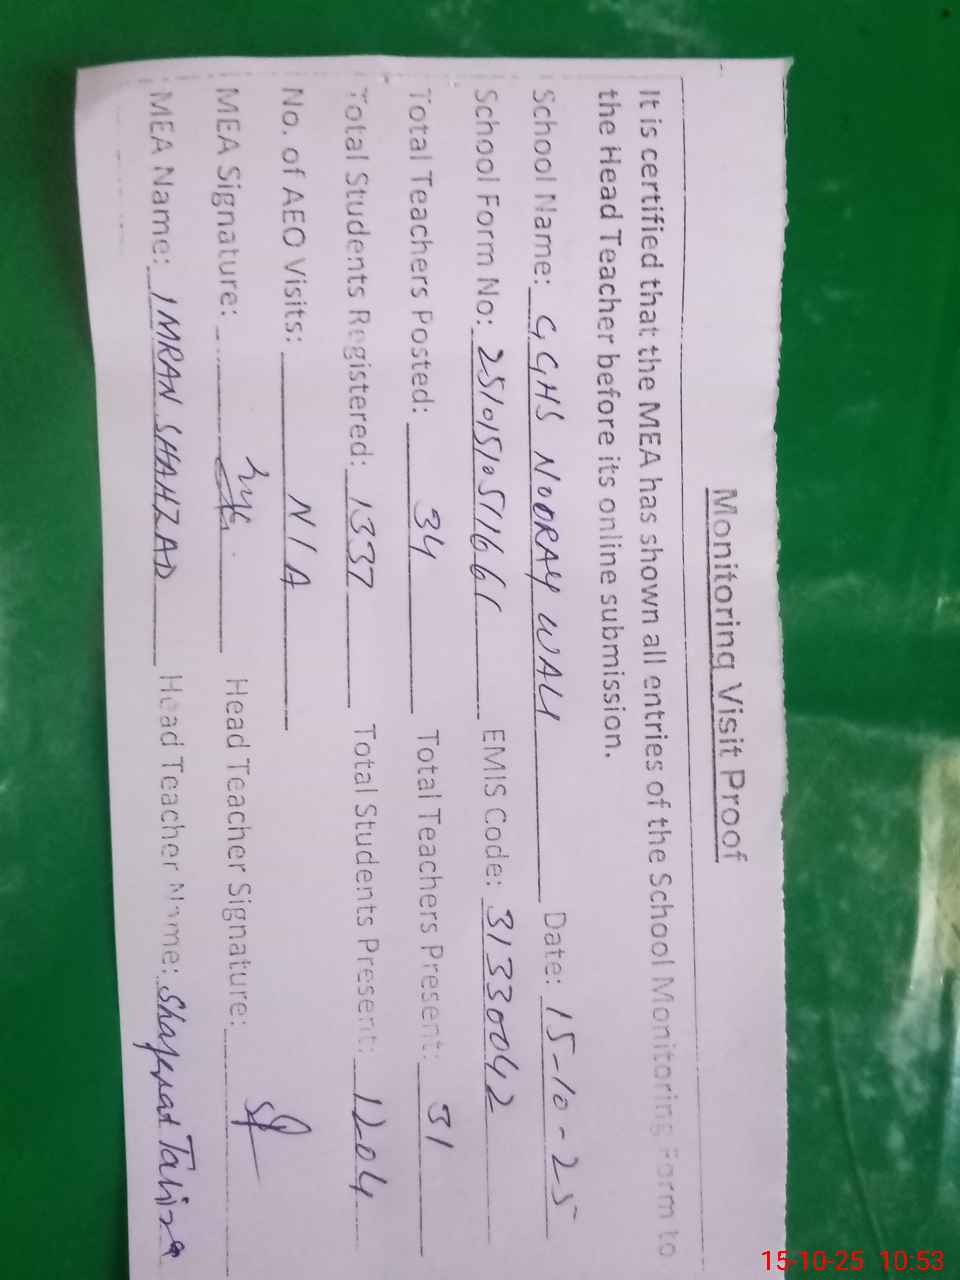 Monitoring Visit Proof
It is certified that the MEA has shown all entries of the School Monitoring Form to
the Head Teacher before its online submission.
School Name: GGHS NOORAY WALI Date: 15-10-25
School Form No: EMIS Code: 31330042
Total Teachers Posted: 34 Total Teachers Present: 31
Total Students Registered: 1337 Total Students Present: 1204
No. of AEO Visits: N/A
MEA Signature: Head Teacher Signature:
MEA Name: IMRAN SHAHZAD Head Teacher Name: Tahira
15-10-25 10:53